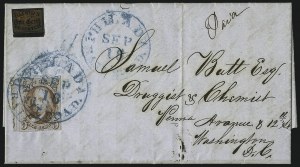 PHILADA
SEP
PHILADA
SEP
Samuel Butt Esq.
Druggist & Chemist
Penna Avenue & 12th St
Washington
D.C.